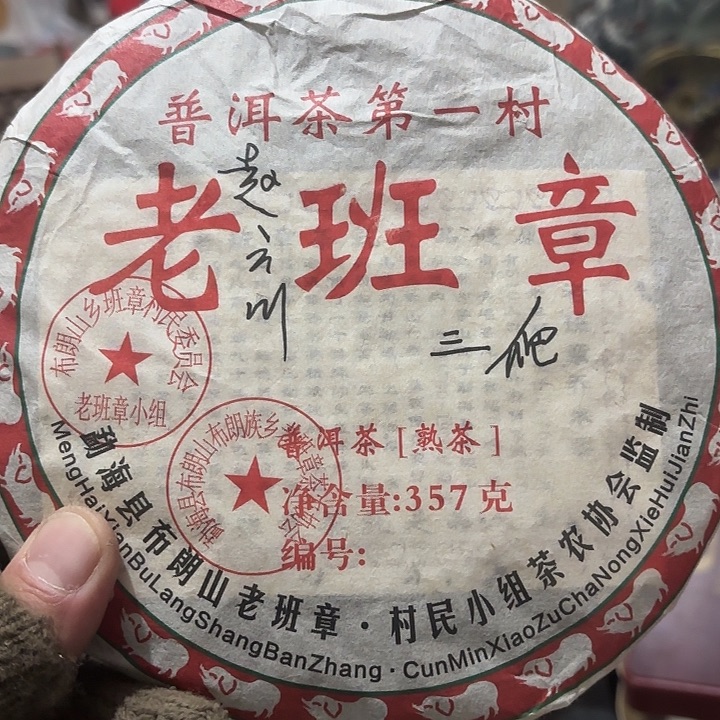 普洱茶第一村
老班章
赵云川
三爬
布朗山乡班章村民委员会
老班章小组
普洱茶[熟茶]
净含量:357克
编号:
勐海县布朗山老班章·村民小组茶农协会监制
MengHaiXianBuLangShangBanZhang·CunMinXiaoZuChaNongXieHuiJianZhi